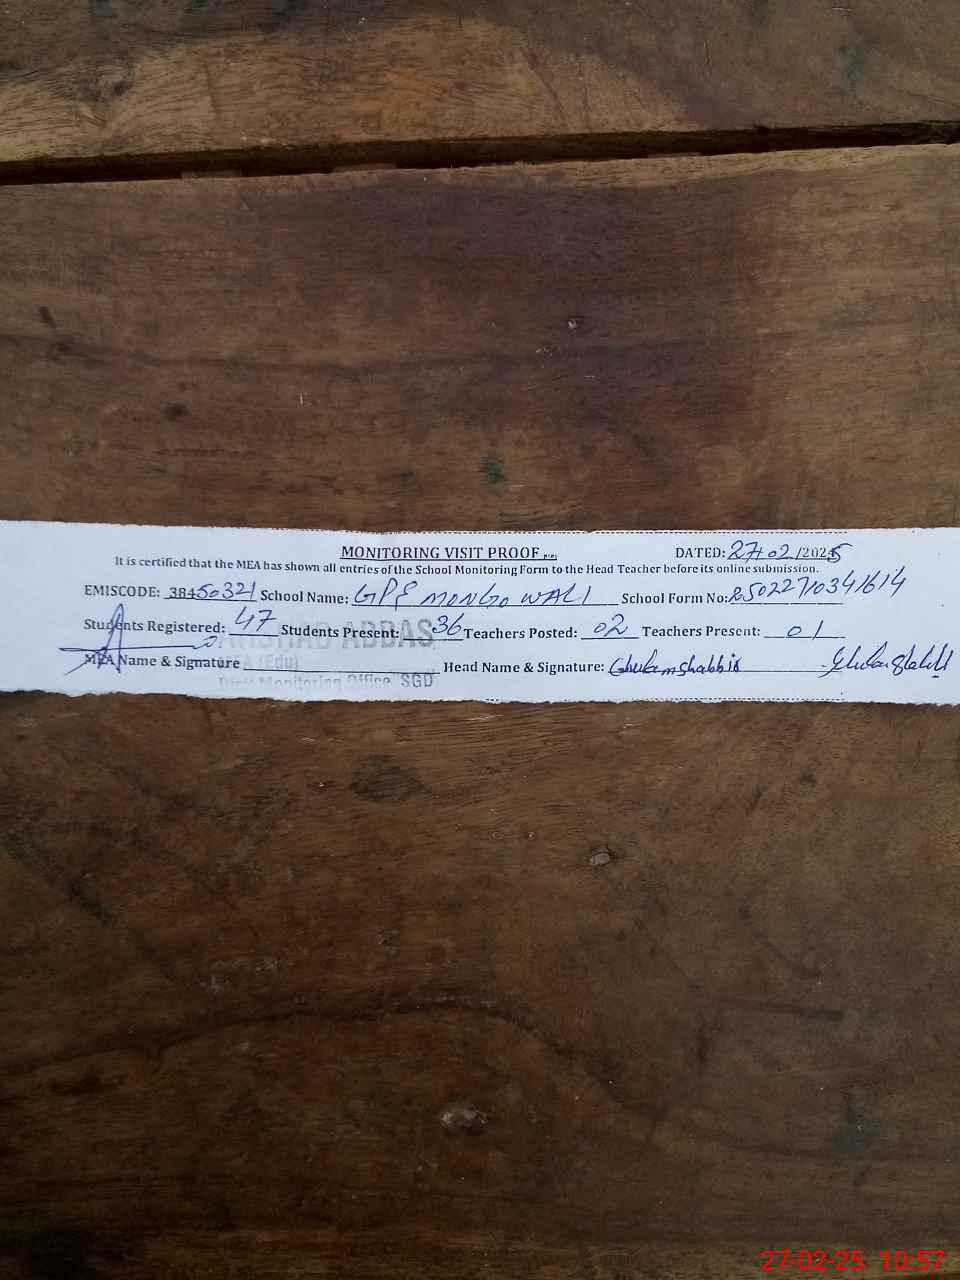 MONITORING VISIT PROOF DATED: 27-02/2025
It is certified that the MEA has shown all entries of the School Monitoring Form to the Head Teacher before its online submission.
EMISCODE: 38450321 School Name: GPS MONGO WALI School Form No: 25022710341614
Students Registered: 47 Students Present: 36 Teachers Posted: 02 Teachers Present: 01
ARSHAD ABBAS
MEA Name & Signature Head Name & Signature: Ghulam shabbir
(Edu)
Distt Monitoring Office SGD
27-02-25 10:57